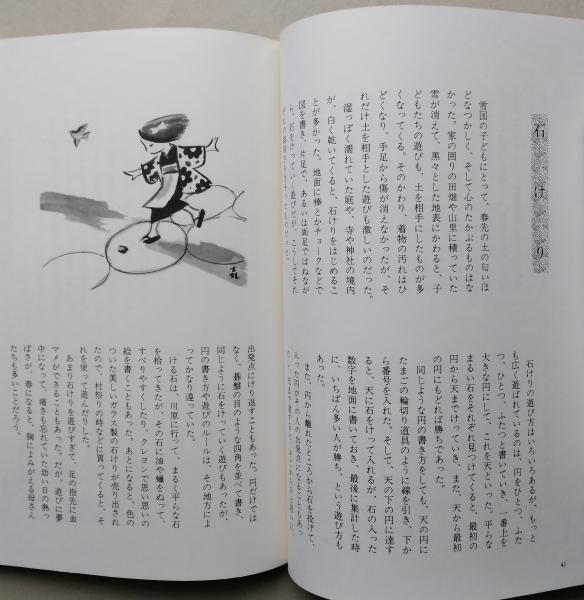 石けり
雪国の子どもにとって、春先の土の匂いほ
どなつかしく、そして心のたかぶるものはな
かった。家の囲りの田畑や山里に積っていた
雪が消えて、黒々とした地表にかわると、子
どもたちの遊びも、土を相手にしたものが多
くなってくる。そのかわり、着物の汚れはひ
どくなり、手足から傷が消えなかったが、そ
れだけ土を相手とした遊びも激しいのだった。
湿っぽく濡れていた庭や、寺や神社の境内
が、白く乾いてくると、石けりをはじめるこ
とが多かった。地面に棒とかチョークなどで
図を書き、片足で、あるいは両足ではねなが
ら、石をけっていく遊びだが、
石けりの遊び方はいろいろあるが、もっと
も広く遊ばれているのは、円をひとつ、ふた
つ、ひとつ、ふたつと書いていき、一番上を
大きな円にして、これを天といった。平らな
まるい石をそれぞれ見つけてくると、最初の
円から天までけっていき、また、天から最初
の円にもどれば勝ちであった。
同じような円の書き方をしても、天の円に
たまごの輪切り道具のように線を引き、下か
ら番号を入れた。そして、天の下の円に達す
ると、天に石をけって入れるが、石の入った
数字を地面に書いておき、最後に集計した時
に、いちばん多い人が勝ち、という遊び方も
あった。
また、円から離れたところから石を投げて、
入った円がその人の出発点になることもあっ
出発点にけり返すこともあった。円だけでは
なく、碁盤の目のような四角を並べて書き、
同じように石をけっていく遊びもあったが、
円の書き方や遊びのルールは、その地方によ
ってかなり違っていた。
ける石は、川原に行って、まるく平らな石
を拾ってきたが、その石に油や蠟をぬって、
すべりやすくしたり、クレヨンで思い思いの
絵を書くこともあった。あとになると、色の
ついた美しいガラス製の石けりが売り出され
たので、村祭りの時などに買ってくると、そ
れを使って遊んだりした。
あまり石けりを遊びすぎて、足の指先に血
マメができることもあった。だが、遊びに夢
中になって、痛さも忘れていた幼い日の熱っ
ぽさが、春になると、胸によみがえる母さん
たちも多いことだろう。
41